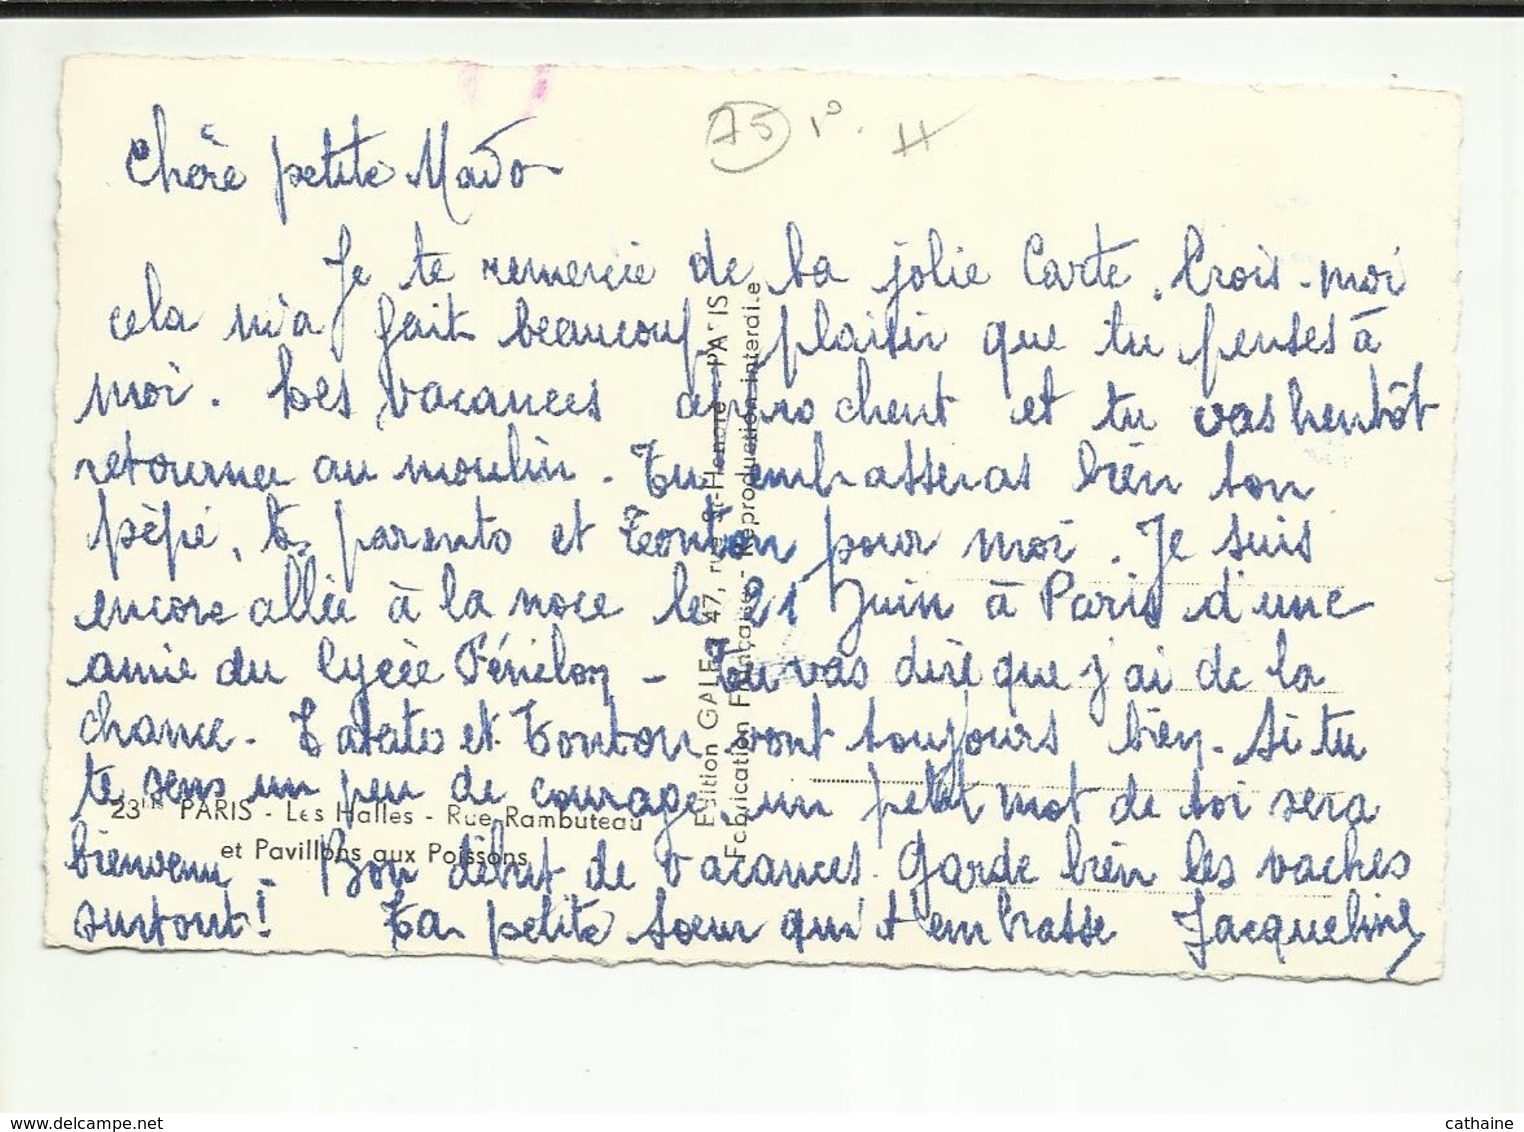 75 1°
Chère petite Mado
Je te remercie de ta jolie Carte. Crois-moi
cela m'a fait beaucoup plaisir que tu penses à
moi. Les vacances approchent et tu vas bientôt
retourner au moulin. Tu embrasseras bien ton
pépé, tes parents et Tonton pour moi. Je suis
encore allée à la noce le 21 Juin à Paris d'une
amie du lycée Fénelon - Tu vas dire que j'ai de la
chance. Tatate et Tonton vont toujours bien. Si tu
te sens un peu de courage, un petit mot de toi sera
bienvenu. Bon début de vacances. Garde bien les vaches
surtout! Ta petite soeur qui t'embrasse Jacqueline
23 PARIS - Les Halles - Rue Rambuteau
et Pavillons aux Poissons
47, rue St-Honoré - PARIS
Fabrication Française - Reproduction interdite
cathaine